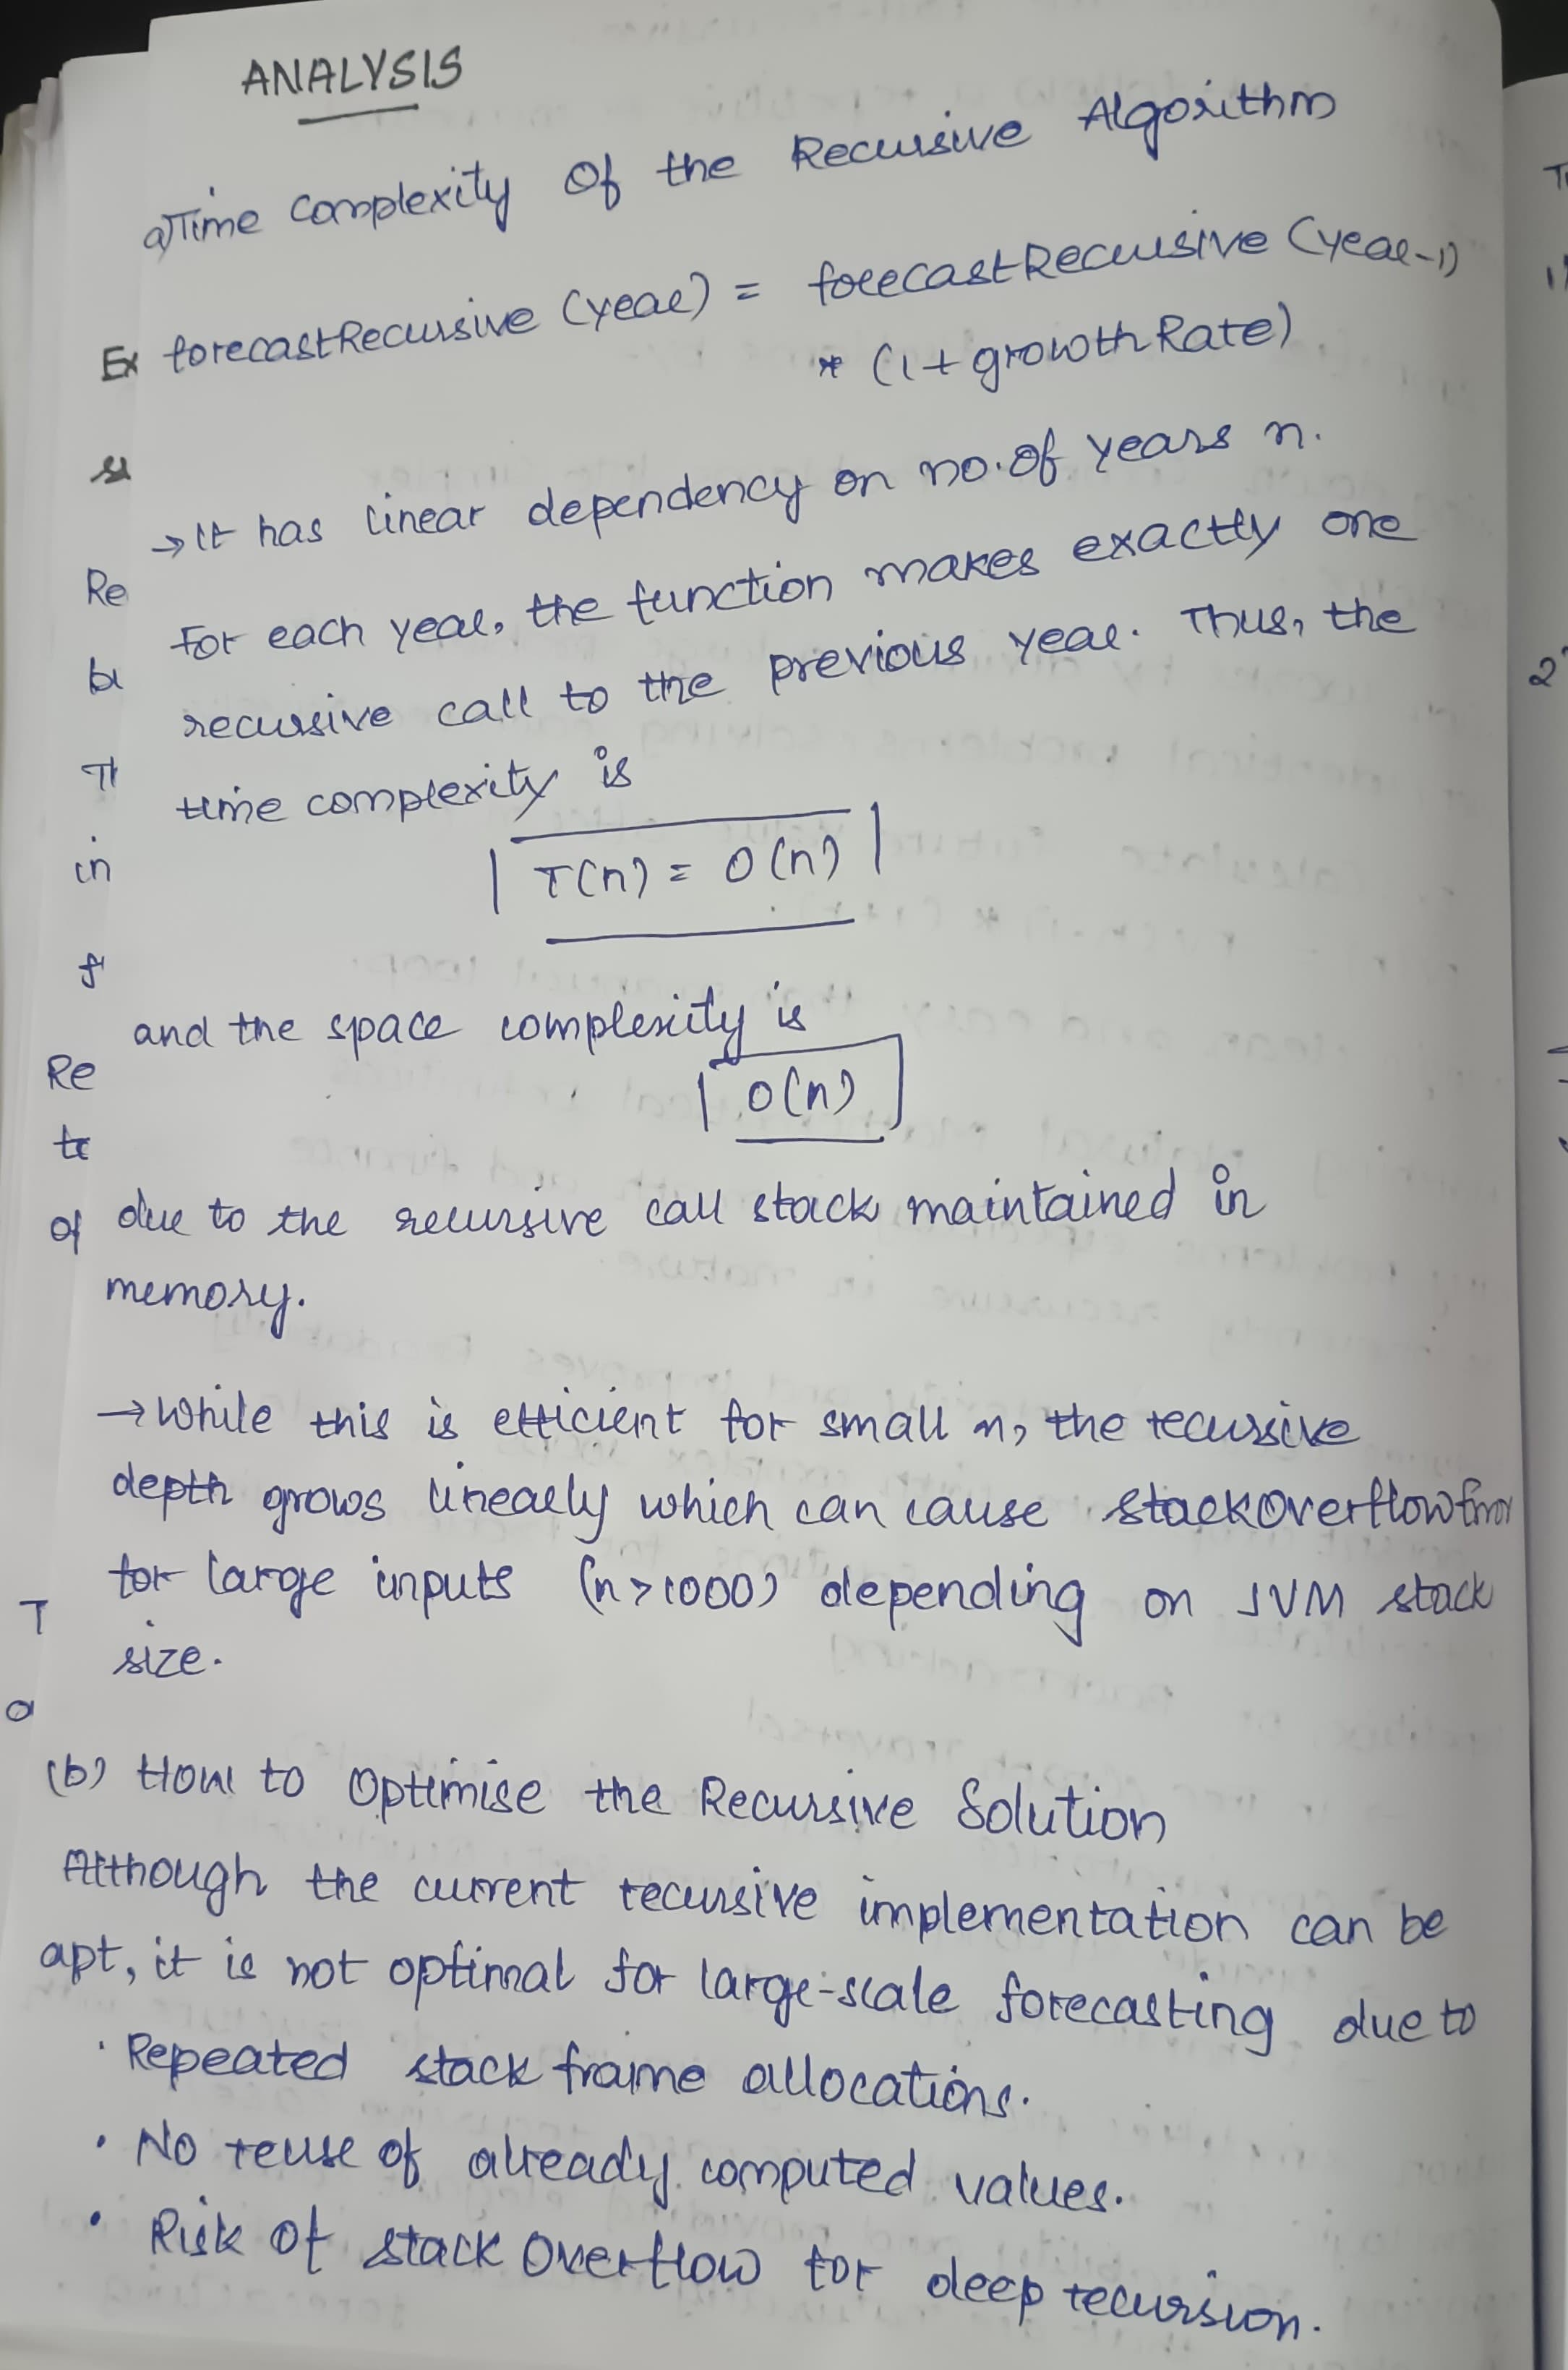 ANALYSIS
a) Time Complexity Of the Recursive Algorithm
forecastRecursive (year) = forecastRecursive (year-1)
* (1 + growthRate)
→ It has linear dependency on no. of years n.
For each year, the function makes exactly one
recursive call to the previous year. Thus, the
time complexity is
T(n) = O(n)
and the space complexity is
O(n)
due to the recursive call stack maintained in
memory.
→ While this is efficient for small n, the recursive
depth grows linearly which can cause StackOverflowError
for large inputs (n>1000) depending on JVM stack
size.
(b) How to Optimise the Recursive Solution
Although the current recursive implementation can be
apt, it is not optimal for large-scale forecasting due to
· Repeated stack frame allocations.
· No reuse of already computed values.
· Risk Of stack Overflow for deep recursion.
Ex
Re
in
Re
of
T